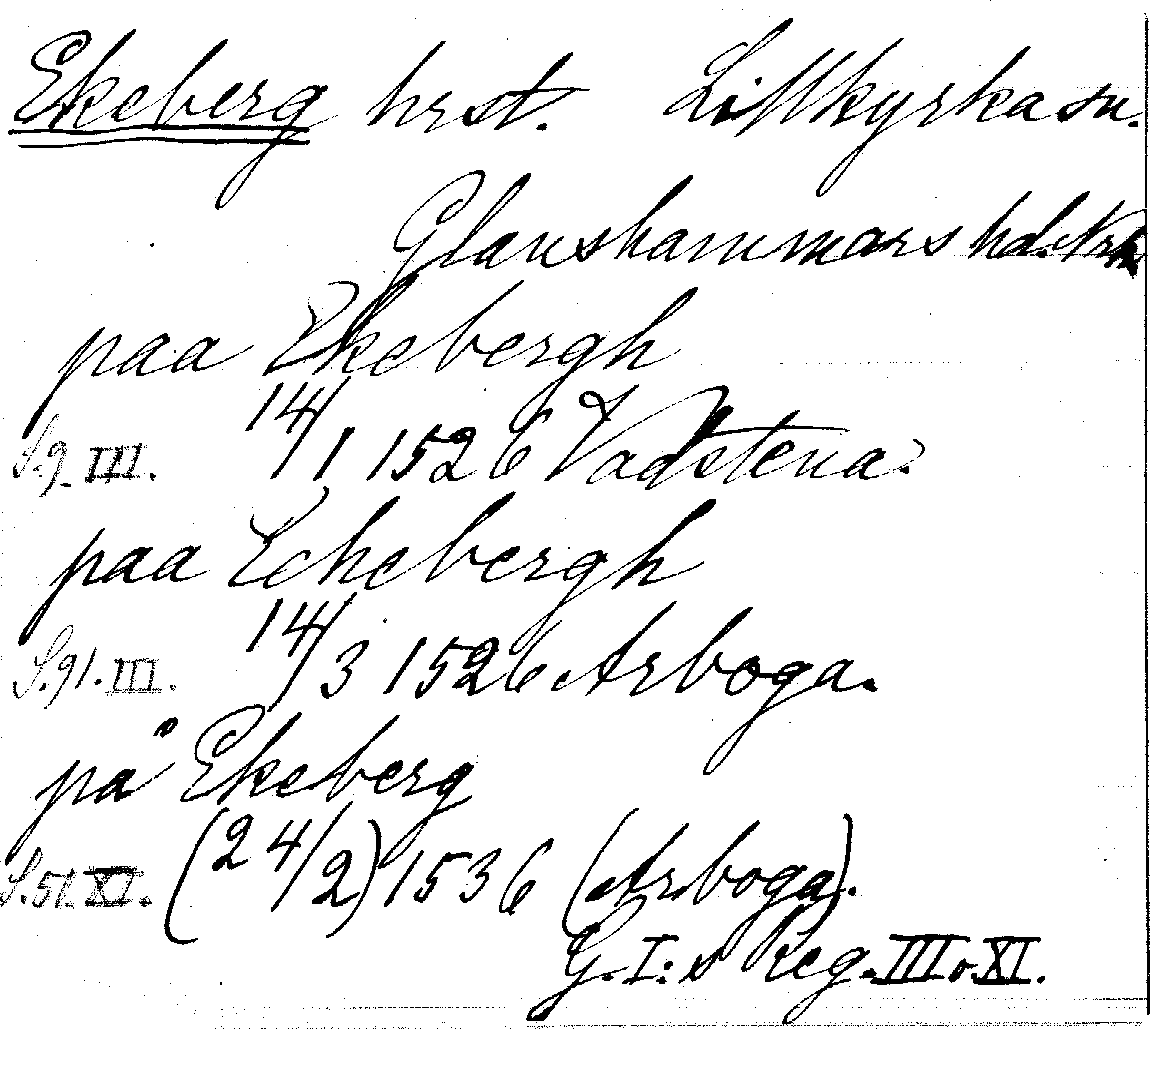 Ekeberg hrst. Lillkyrka sn.
Glanshammars hd. Nrk
paa Ekebergh
S. 9. III. 14/1 1526 Vadstena.
paa Echebergh
S. 91. III. 14/3 1526 Arboga.
på Ekeberg
S. 51. XI. (24/2) 1536 (Arboga).
G. I:s Reg. III o. XI.